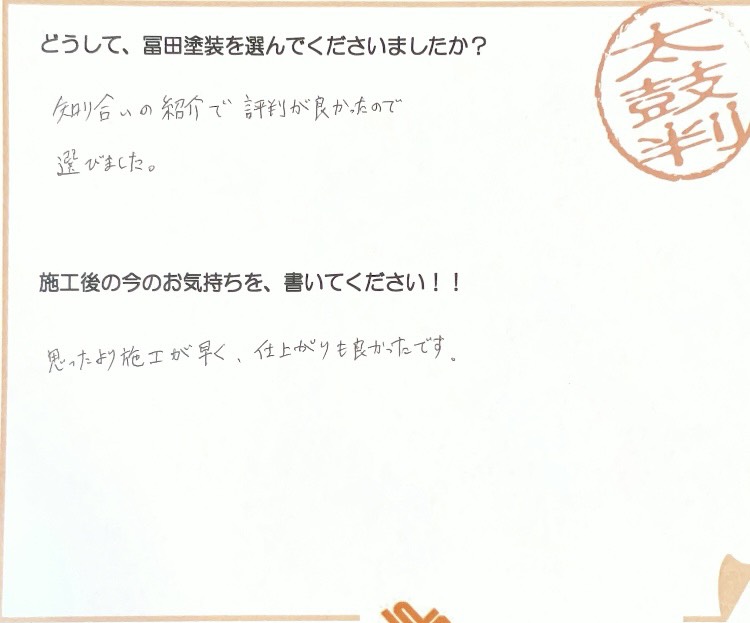 どうして、冨田塗装を選んでくださいましたか？
太鼓判
知り合いの紹介で評判が良かったので
選びました。
施工後の今のお気持ちを、書いてください！！
思ったより施工が早く、仕上がりも良かったです。